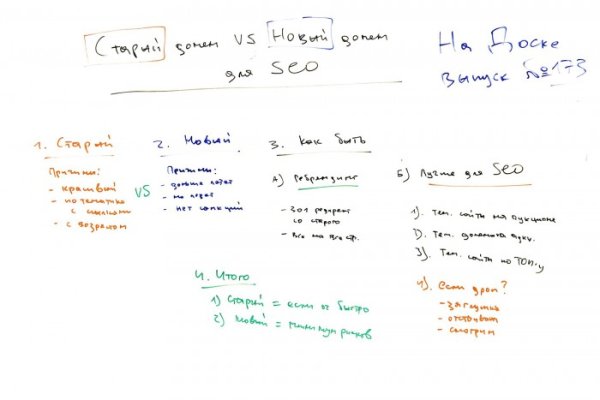 Старый домен VS Новый домен
для SEO
На Доске
выпуск №173
1. Старый
Причины:
- красивый
- по тематике
с ссылками
- с возрастом
VS
2. Новый
Причины:
- дольше
- нет санкций
3. Как быть
А) Ребрендинг
- 301 редирект
со старого
- все на все стр.
Б) Лучше для SEO
1). Тем. сайты на аукционе
2). Тем. домены аукц.
3). Тем. сайты по ТОПу
4). если дроп?
- заглушка
- отстаиваем
- смотрим
4. Итого
1) Старый = если оч быстро
2) Новый = минимум рисков